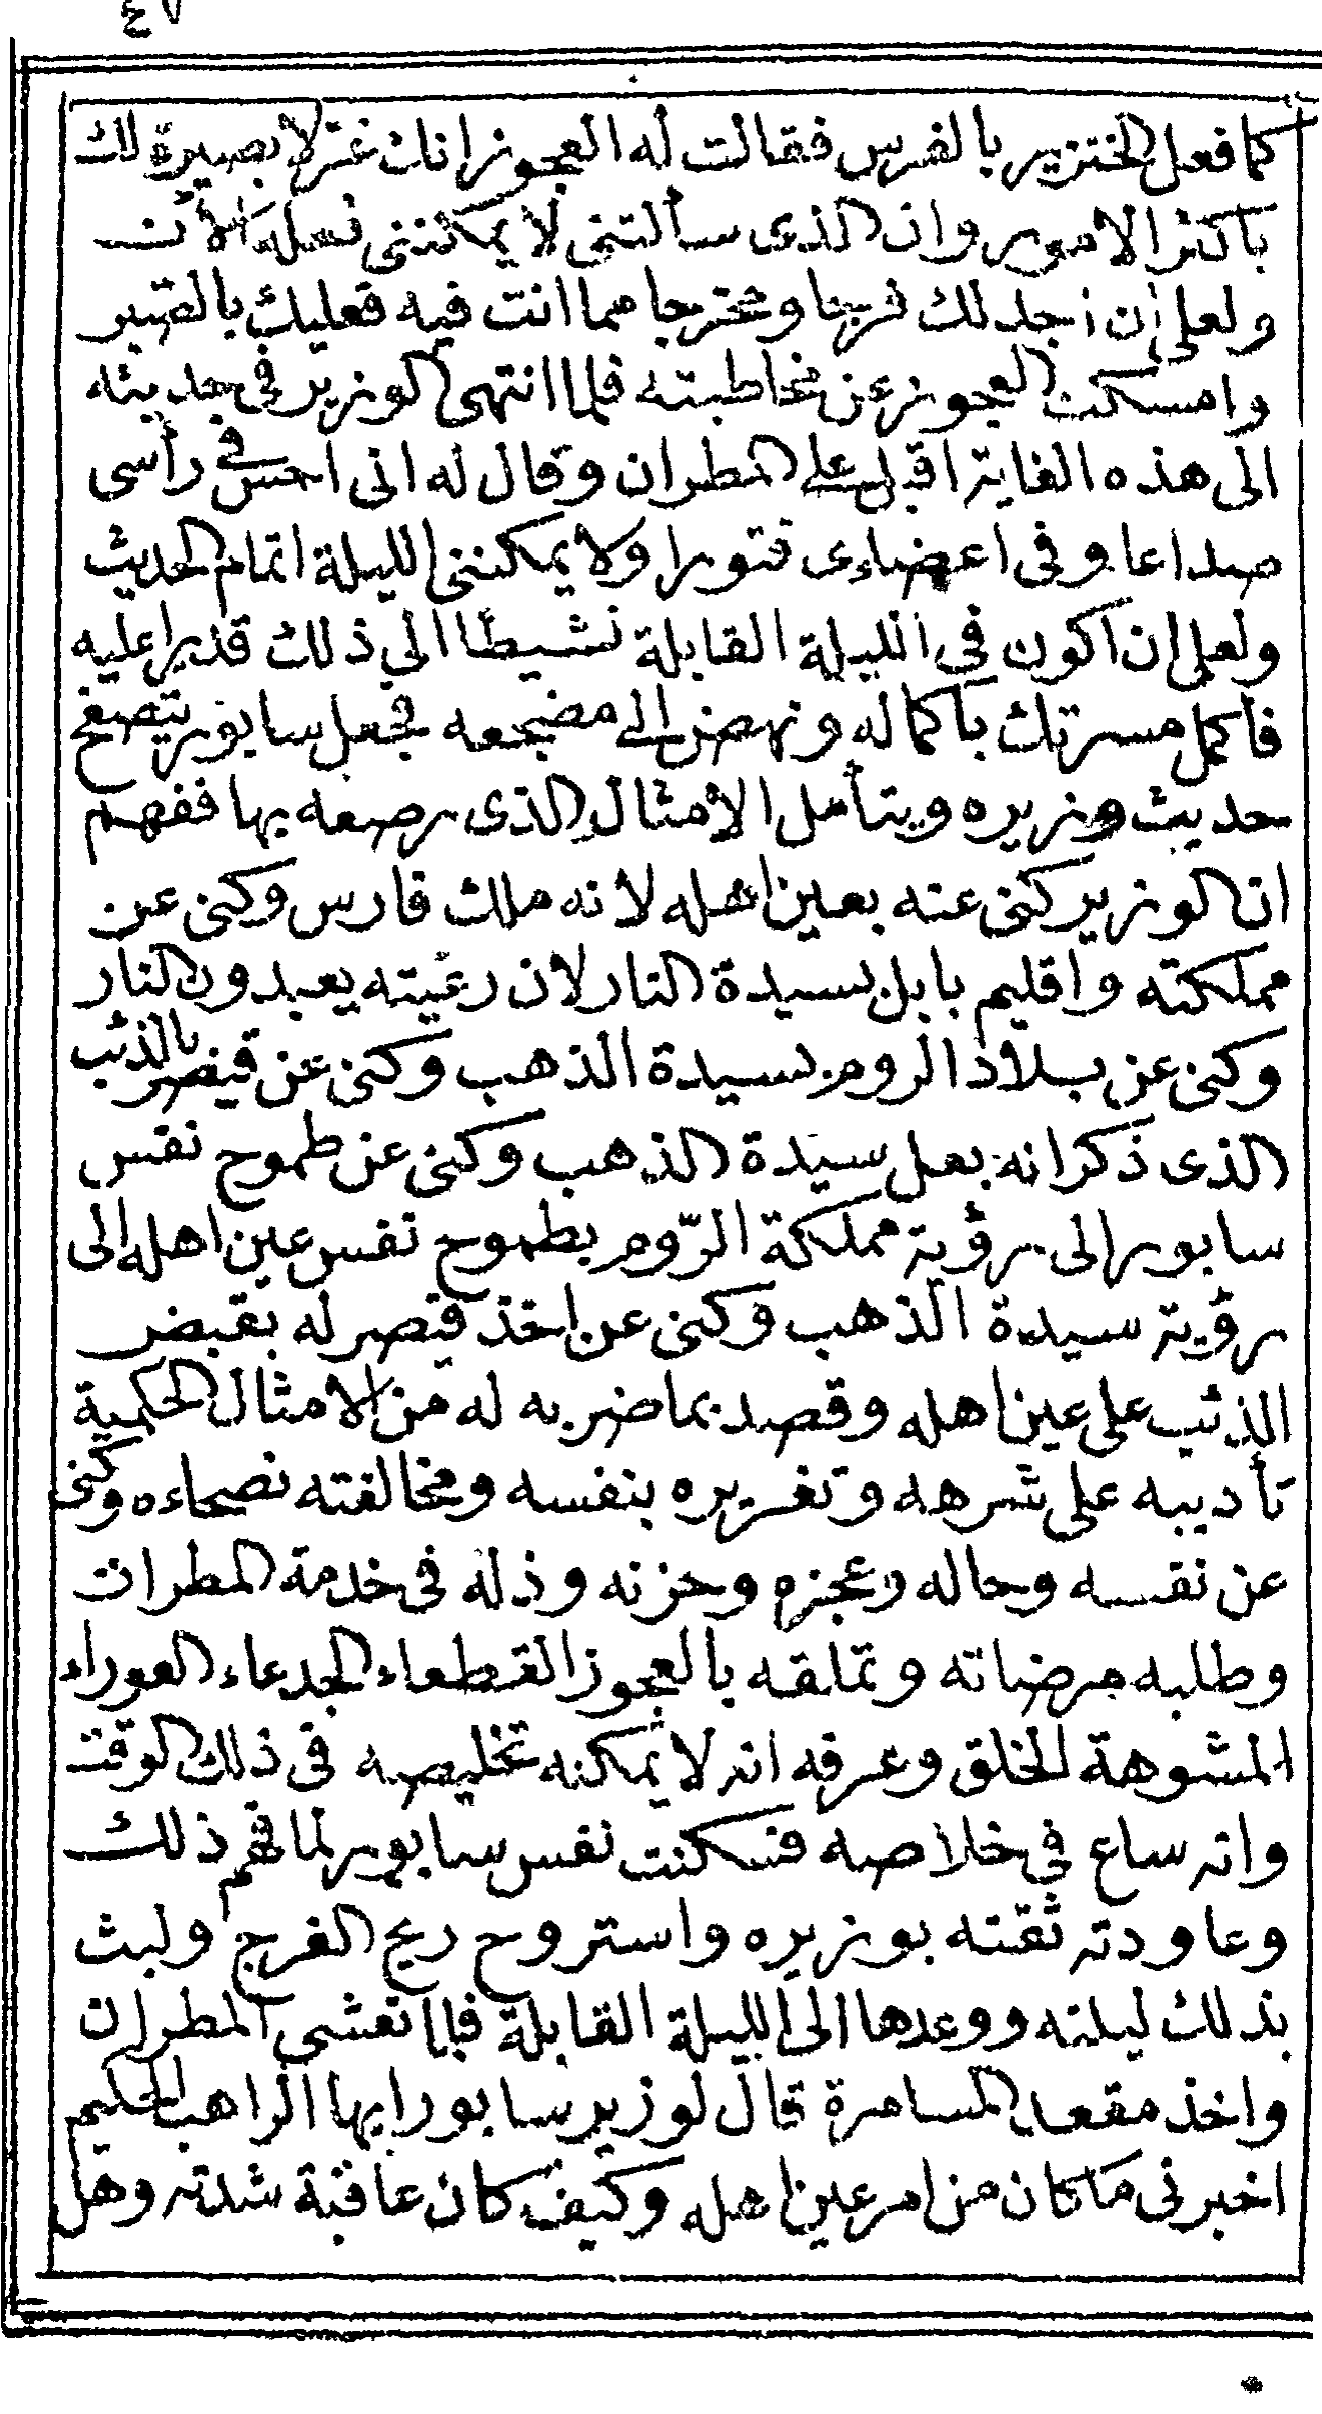 ٤٧
كما فعل الخنزير بالفرس فقالت له العجوز انك غر لا بصيرة لك
باكثر الامور وان الذى سألتنى لا يمكننى فعله الآن
ولعلى ان اجد لك فرجا ومخرجا مما انت فيه فعليك بالصبر
وامسكت العجوز عن مخاطبته فلما انتهى الوزير فى حديثه
الى هذه الغاية اقبل على المطران وقال له انى احس فى رأسى
صداعا وفى اعضاءى فتورا ولا يمكننى الليلة اتمام الحديث
ولعلى ان اكون فى الليلة القابلة نشيطا الى ذلك قديرا عليه
فأكمل مسرتك باكماله ونهض الى مضجعه فجعل سابور يتصفح
حديث وزيره ويتأمل الامثال الذى رصعه بها ففهم
ان الوزير كنى عنه بعين اهله لانه ملك فارس وكنى عن
مملكته واقليم بابل بسيدة النار لان رعيته يعبدون النار
وكنى عن بلاد الروم بسيدة الذهب وكنى عن قيصر بالذئب
الذى ذكر انه بعل سيدة الذهب وكنى عن طموح نفس
سابور الى رؤية مملكة الرّوم بطموح نفس عين اهله الى
رؤية سيدة الذهب وكنى عن اخذ قيصر له بقبض
الذئب على عين اهله وقصد بما ضربه له من الامثال الحكمية
تأديبه على شرهه وتغريره بنفسه ومخالفته نصحاءه وكنى
عن نفسه وحاله وعجزه وحزنه وذله فى خدمة المطران
وطلبه مرضاته وتملقه بالعجوز القطعاء الجدعاء العوراء
المشوهة الخلق وعرفه انه لا يمكنه تخليصه فى ذلك الوقت
وانه ساع فى خلاصه فسكنت نفس سابور لما فهم ذلك
وعاودته ثقته بوزيره واستروح ريح الفرج ولبث
بذلك ليلته ووعدها الى الليلة القابلة فلما تعشى المطران
واخذ مقعد المسامرة قال لوزير سابور ايها الراهب الحكيم
اخبرنى ما كان من امر عين اهله وكيف كان عاقبة شدته وهل